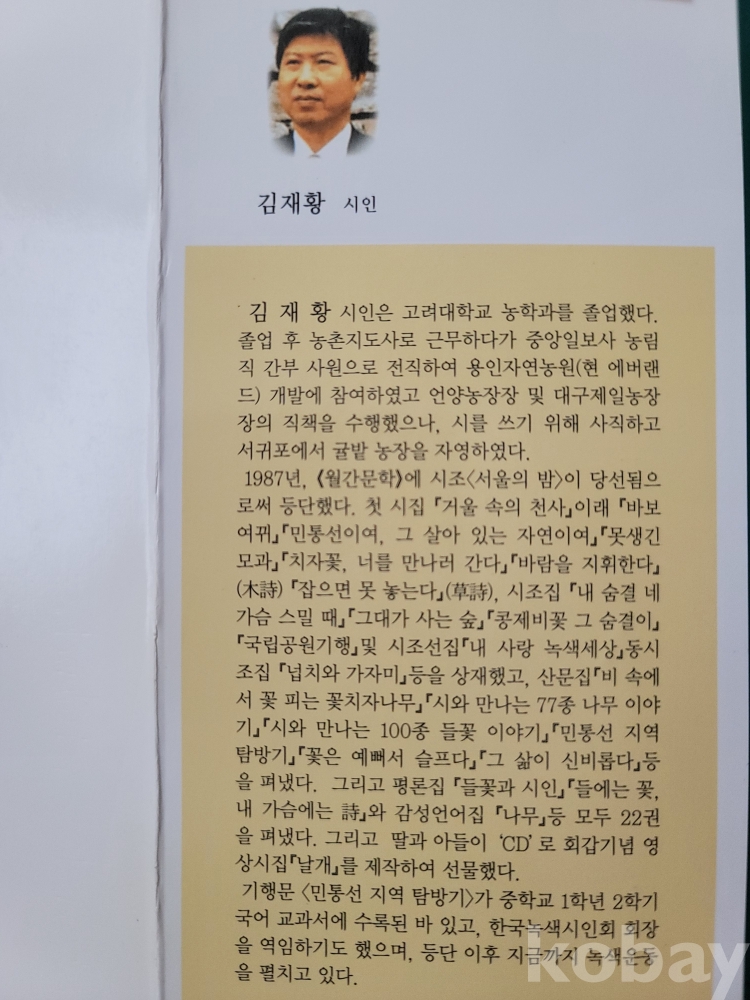 김재황 시인
김 재 황 시인은 고려대학교 농학과를 졸업했다.
졸업 후 농촌지도사로 근무하다가 중앙일보사 농림
직 간부 사원으로 전직하여 용인자연농원(현 에버랜
드) 개발에 참여하였고 언양농장장 및 대구제일농장
장의 직책을 수행했으나, 시를 쓰기 위해 사직하고
서귀포에서 귤밭 농장을 자영하였다.
1987년, 《월간문학》에 시조〈서울의 밤〉이 당선됨으
로써 등단했다. 첫 시집 『거울 속의 천사』이래 『바보
여뀌』『민통선이여, 그 살아 있는 자연이여』『못생긴
모과』『치자꽃, 너를 만나러 간다』『바람을 지휘한다』
(木詩) 『잡으면 못 놓는다』(草詩), 시조집 『내 숨결 네
가슴 스밀 때』『그대가 사는 숲』『콩제비꽃 그 숨결이』
『국립공원기행』및 시조선집『내 사랑 녹색세상』동시
조집 『넙치와 가자미』등을 상재했고, 산문집『비 속에
서 꽃 피는 꽃치자나무』『시와 만나는 77종 나무 이야
기』『시와 만나는 100종 들꽃 이야기』『민통선 지역
탐방기』『꽃은 예뻐서 슬프다』『그 삶이 신비롭다』등
을 펴냈다. 그리고 평론집 『들꽃과 시인』『들에는 꽃,
내 가슴에는 詩』와 감성언어집 『나무』등 모두 22권
을 펴냈다. 그리고 딸과 아들이 ‘CD’로 회갑기념 영
상시집『날개』를 제작하여 선물했다.
기행문 〈민통선 지역 탐방기〉가 중학교 1학년 2학기
국어 교과서에 수록된 바 있고, 한국녹색시인회 회장
을 역임하기도 했으며, 등단 이후 지금까지 녹색운동
을 펼치고 있다.
kobay